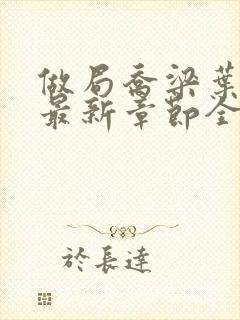 做局乔梁葉
最新章節全
於長達